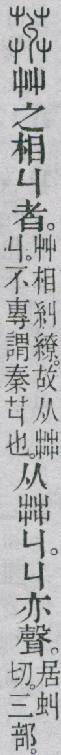 艸之相丩者。
艸相糾繚。故从茻
丩。不專謂秦芁也。
从茻丩。丩亦聲。
居虯
切。三部